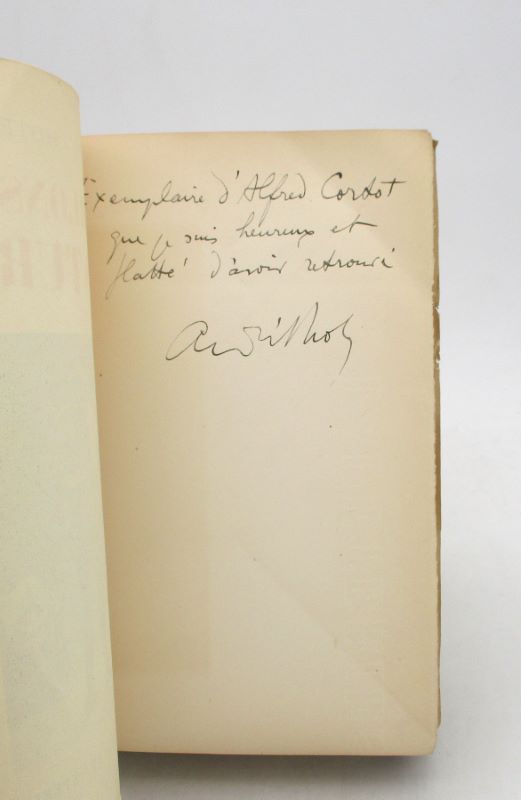 Exemplaire d'Alfred Cortot
que je suis heureux et
flatté d'avoir retrouvé